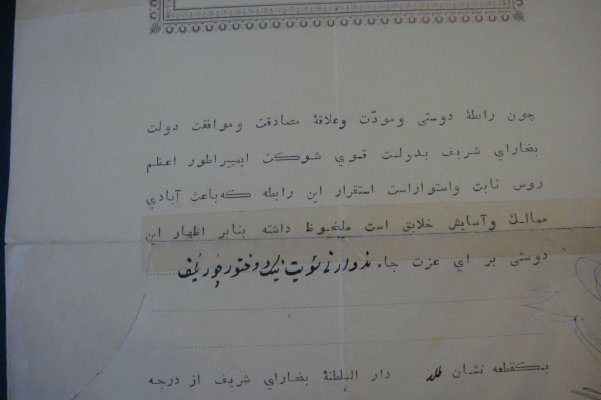 چون رابطهٔ دوستی ومودّت وعلاقهٔ مصادقت وموافقت دولت
بخارای شریف بدولت قوي شوکت ایمپیراطور اعظم
روس ثابت واستواراست استقرار این رابطه که باعث آبادي
ممالك وآسایش خلایق است ملحوظ داشته بنابر اظهار این
دوستی بر اي عزت جاه
یکقطعه نشان طلا دار السلطنهٔ بخاراي شریف از درجه